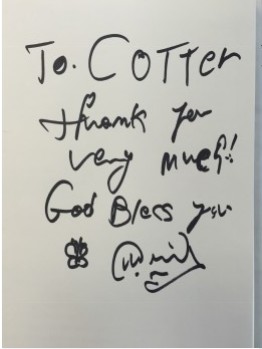 To. COTTer
thank you
very much!!
God Bless you